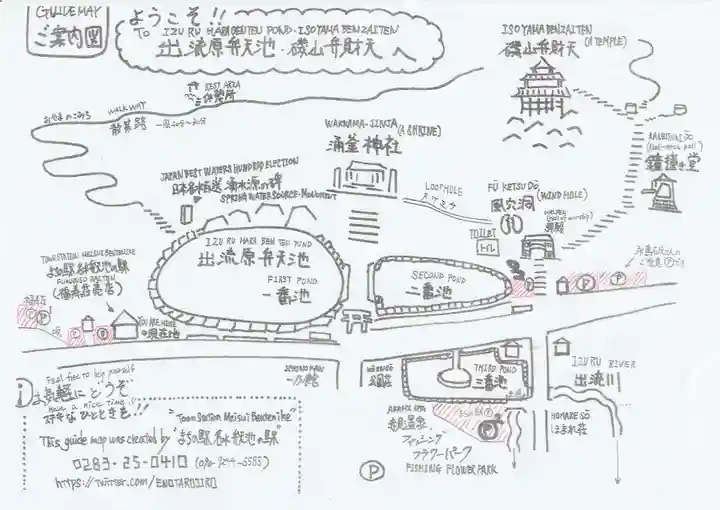 GUIDE MAP
ご案内図
ようこそ!!
To IZU RU HARA BENTEN POND・ISOYAMA BENZAITEN
出流原弁天池・磯山弁財天へ
ISOYAMA BENZAITEN
磯山弁財天 (A TEMPLE)
REST AREA
休憩所
WALK WAY
散策路
WAKKAMA-JINJA (A SHRINE)
涌釜神社
JAPAN BEST WATERS HUNDRED ELECTION
日本名水百選 湧水源の碑
SPRING WATER SOURCE・MONUMENT
LOOPHOLE
ヌケミチ
FŪ KETSU DŌ (WIND HOLE)
風穴洞
鐘撞き堂
TOILET
トイレ
IZU RU HARA BEN TEN POND
出流原弁天池
FIRST POND
一番池
SECOND POND
二番池
TOWN STATION MEISUI BENTENIKE
まちの駅 名水弁天池の駅
YOU ARE HERE
現在地
THIRD POND
三番池
IZURU RIVER
出流川
HOMARE SŌ
ほまれ荘
AKAMI SPA
赤見温泉
フィッシング
フラワーパーク
FISHING FLOWER PARK
P
Feel free to help yourself
お気軽にどうぞ
Have a nice time!!
ステキなひとときを!!
"Town Station Meisui Bentenike"
This guide map was created by "まちの駅 名水弁天池の駅"
0283-25-0410
https://twitter.com/ENOTAROJIRO